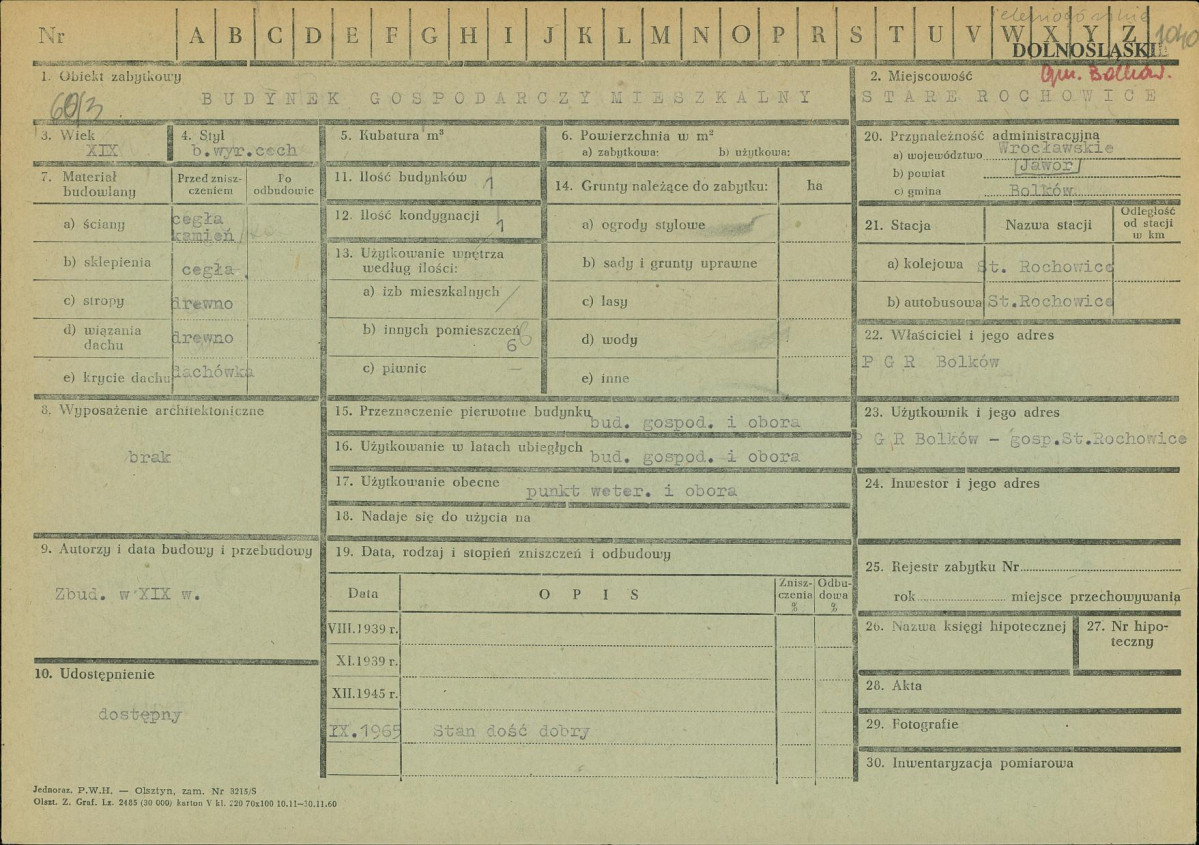 Nr A B C D E F G H I J K L M N O P R S T U V W X Y Z
jeleniogórskie
1040
DOLNOŚLĄSKI
Gm. Bolków.
1. Obiekt zabytkowy
60/3
BUDYNEK GOSPODARCZY MIESZKALNY
2. Miejscowość
STARE ROCHOWICE
3. Wiek
XIX
4. Styl
b.wyr.cech
5. Kubatura m³
6. Powierzchnia w m²
a) zabytkowa: b) użytkowa:
20. Przynależność administracyjna
a) województwo Wrocławskie
b) powiat Jawor
c) gmina Bolków
7. Materiał budowlany
Przed zniszczeniem
Po odbudowie
a) ściany cegła kamień
b) sklepienia cegła
c) stropy drewno
d) wiązania dachu drewno
e) krycie dachu dachówka
11. Ilość budynków 1
12. Ilość kondygnacji 1
13. Użytkowanie wnętrza według ilości:
a) izb mieszkalnych /
b) innych pomieszczeń 6
c) piwnic —
14. Grunty należące do zabytku: ha
a) ogrody stylowe
b) sady i grunty uprawne
c) lasy
d) wody
e) inne
21. Stacja Nazwa stacji Odległość od stacji w km
a) kolejowa St. Rochowice
b) autobusowa St.Rochowice
22. Właściciel i jego adres
P G R Bolków
8. Wyposażenie architektoniczne
brak
15. Przeznaczenie pierwotne budynku bud. gospod. i obora
16. Użytkowanie w latach ubiegłych bud. gospod. i obora
17. Użytkowanie obecne punkt weter. i obora
18. Nadaje się do użycia na
23. Użytkownik i jego adres
P G R Bolków - gosp.St.Rochowice
24. Inwestor i jego adres
9. Autorzy i data budowy i przebudowy
Zbud. w XIX w.
19. Data, rodzaj i stopień zniszczeń i odbudowy
Data OPIS Zniszczenia % Odbudowa %
VIII.1939 r.
XI.1939 r.
XII.1945 r.
IX.1965 Stan dość dobry
25. Rejestr zabytku Nr
rok miejsce przechowywania
26. Nazwa księgi hipotecznej
27. Nr hipoteczny
10. Udostępnienie
dostępny
28. Akta
29. Fotografie
30. Inwentaryzacja pomiarowa
Jednoraz. P.W.H. — Olsztyn, zam. Nr 3215/S
Olszt. Z. Graf. Lz. 2485 (30 000) karton V kl. 220 70x100 10.11—30.11.60